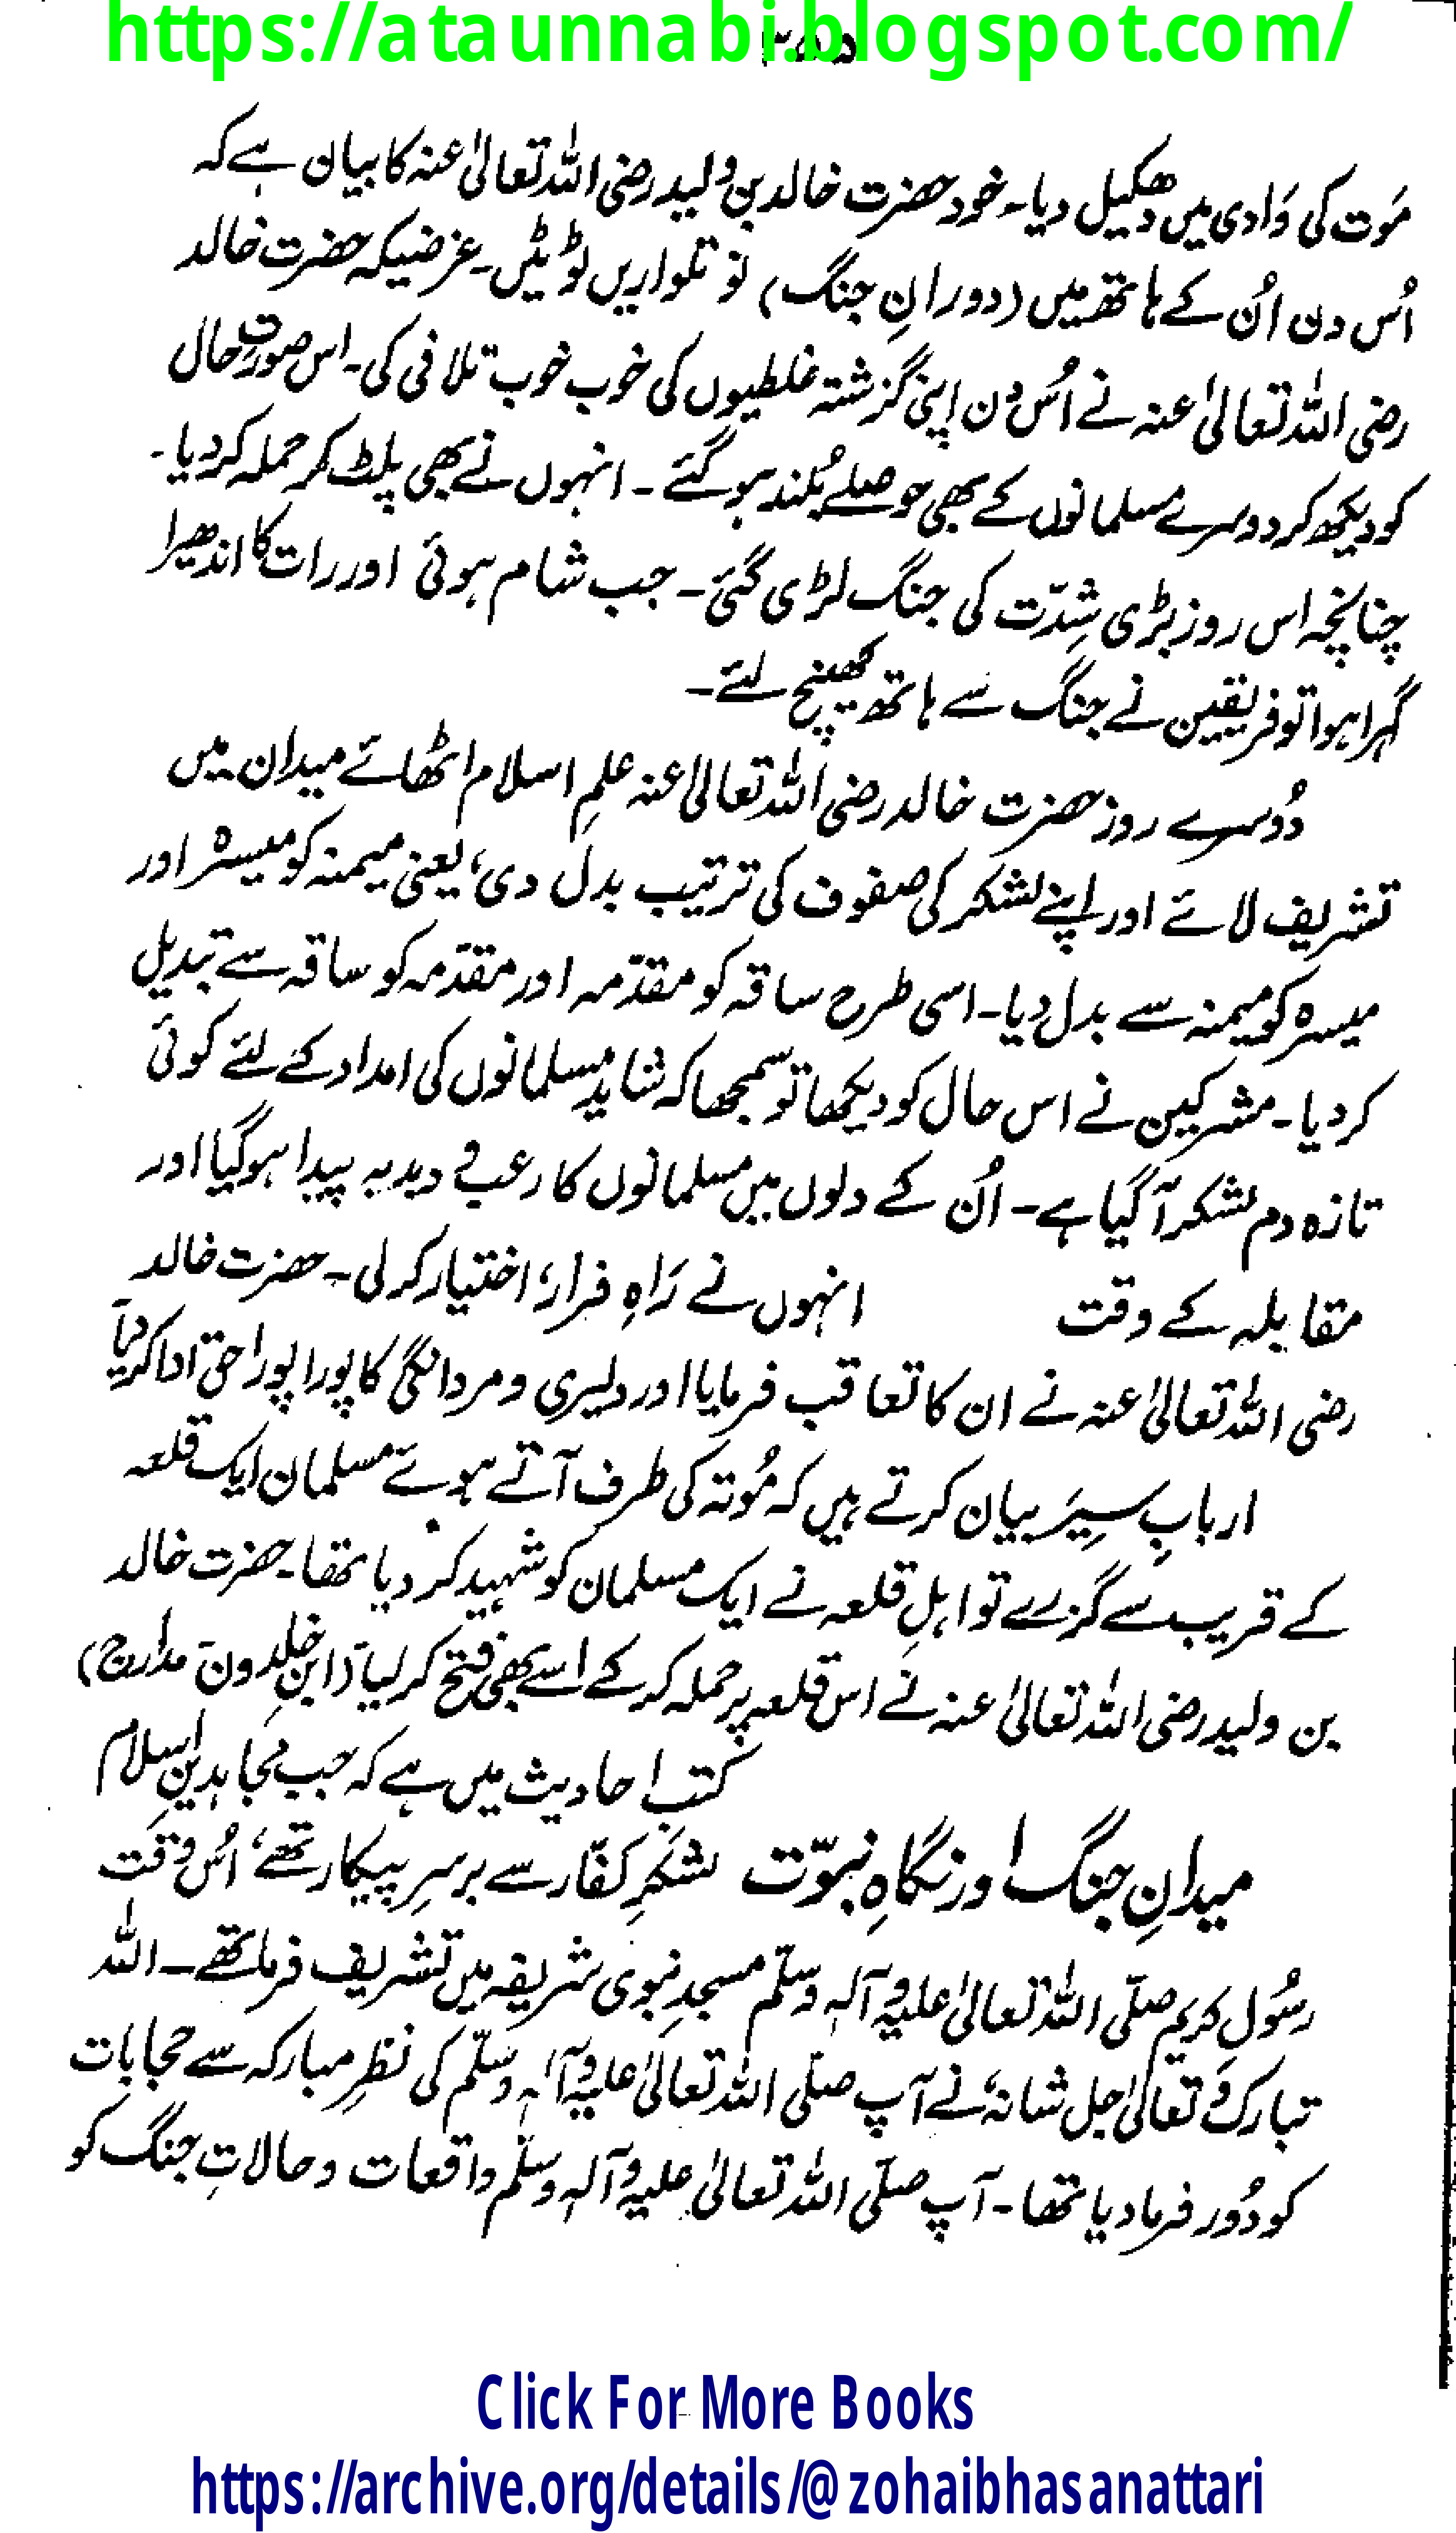 https://ataunnabi.blogspot.com/
مَوت کی وَادی میں دھکیل دیا۔ خود حضرت خالد بن ولید رضی اللہ تعالیٰ عنہ کا بیان ہے کہ
اُس دن اُن کے ہاتھ میں (دورانِ جنگ) نو تلواریں ٹوٹیں۔ غرضیکہ حضرت خالد
رضی اللہ تعالیٰ عنہ نے اُس دن اپنی گزشتہ غلطیوں کی خوب خوب تلافی کی۔ اس صورتِ حال
کو دیکھ کر دوسرے مسلمانوں کے بھی حوصلے بُلند ہو گئے۔ انہوں نے بھی پلٹ کر حملہ کر دیا۔
چنانچہ اس روز بڑی شِدّت کی جنگ لڑی گئی۔ جب شام ہوئی اور رات کا اندھیرا
گہرا ہوا تو فریقین نے جنگ سے ہاتھ کھینچ لئے۔
دُوسرے روز حضرت خالد رضی اللہ تعالیٰ عنہ علمِ اسلام اٹھائے میدان میں
تشریف لائے اور اپنے لشکر کی صفوف کی ترتیب بدل دی، یعنی میمنہ کو میسرہ اور
میسرہ کو میمنہ سے بدل دیا۔ اسی طرح ساقہ کو مقدّمہ اور مقدّمہ کو ساقہ سے تبدیل
کر دیا۔ مشرکین نے اس حال کو دیکھا تو سمجھا کہ شاید مسلمانوں کی امداد کے لئے کوئی
تازہ دم لشکر آ گیا ہے۔ اُن کے دلوں میں مسلمانوں کا رعب و دبدبہ پیدا ہو گیا اور
مقابلہ کے وقت انہوں نے رَاہِ فرار، اختیار کر لی۔ حضرت خالد
رضی اللہ تعالیٰ عنہ نے ان کا تعاقب فرمایا اور دلیری و مردانگی کا پورا پورا حق ادا کر دیا
اربابِ سِیَر بیان کرتے ہیں کہ مُوتہ کی طرف آتے ہوئے مسلمان ایک قلعہ
کے قریب سے گزرے تو اہلِ قلعہ نے ایک مسلمان کو شہید کر دیا تھا۔ حضرت خالد
بن ولید رضی اللہ تعالیٰ عنہ نے اس قلعہ پر حملہ کر کے اسے بھی فتح کر لیا (ابنِ خلدون۔ مدارج)
کتبِ احادیث میں ہے کہ جب مجاہدینِ اسلام
میدانِ جنگ اور نگاہِ نبوّت لشکرِ کفّار سے برسرِ پیکار تھے، اُس وقت
رسُولِ کریم صلّی اللہ تعالیٰ علیہ و آلہٖ وسلّم مسجدِ نبوی شریفہ میں تشریف فرما تھے۔ اللہ
تبارک و تعالیٰ جل شانہٗ نے آپ صلّی اللہ تعالیٰ علیہ و آلہٖ وسلّم کی نظرِ مبارکہ سے حجابات
کو دُور فرما دیا تھا۔ آپ صلّی اللہ تعالیٰ علیہ و آلہٖ وسلّم واقعات و حالاتِ جنگ کو
Click For More Books
https://archive.org/details/@zohaibhasanattari